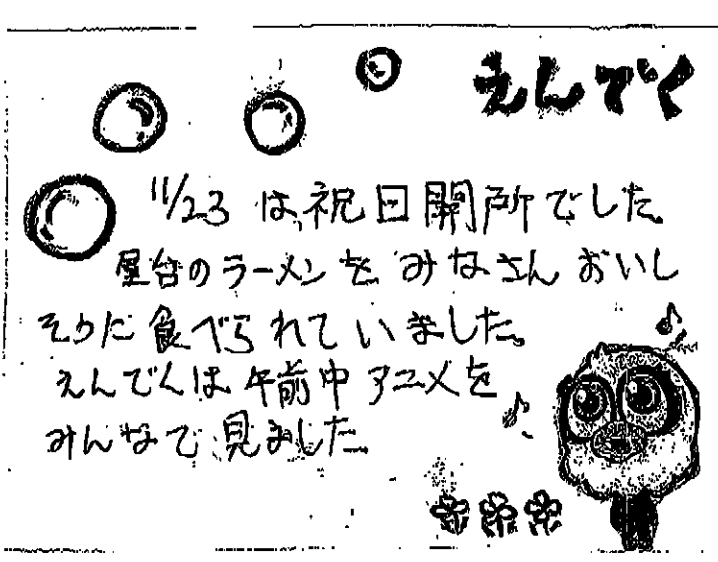 えんでく
11/23 は祝日開所でした。
屋台のラーメンをみなさんおいし
そうに食べられていました。
えんでくは午前中アニメを
みんなで見ました。